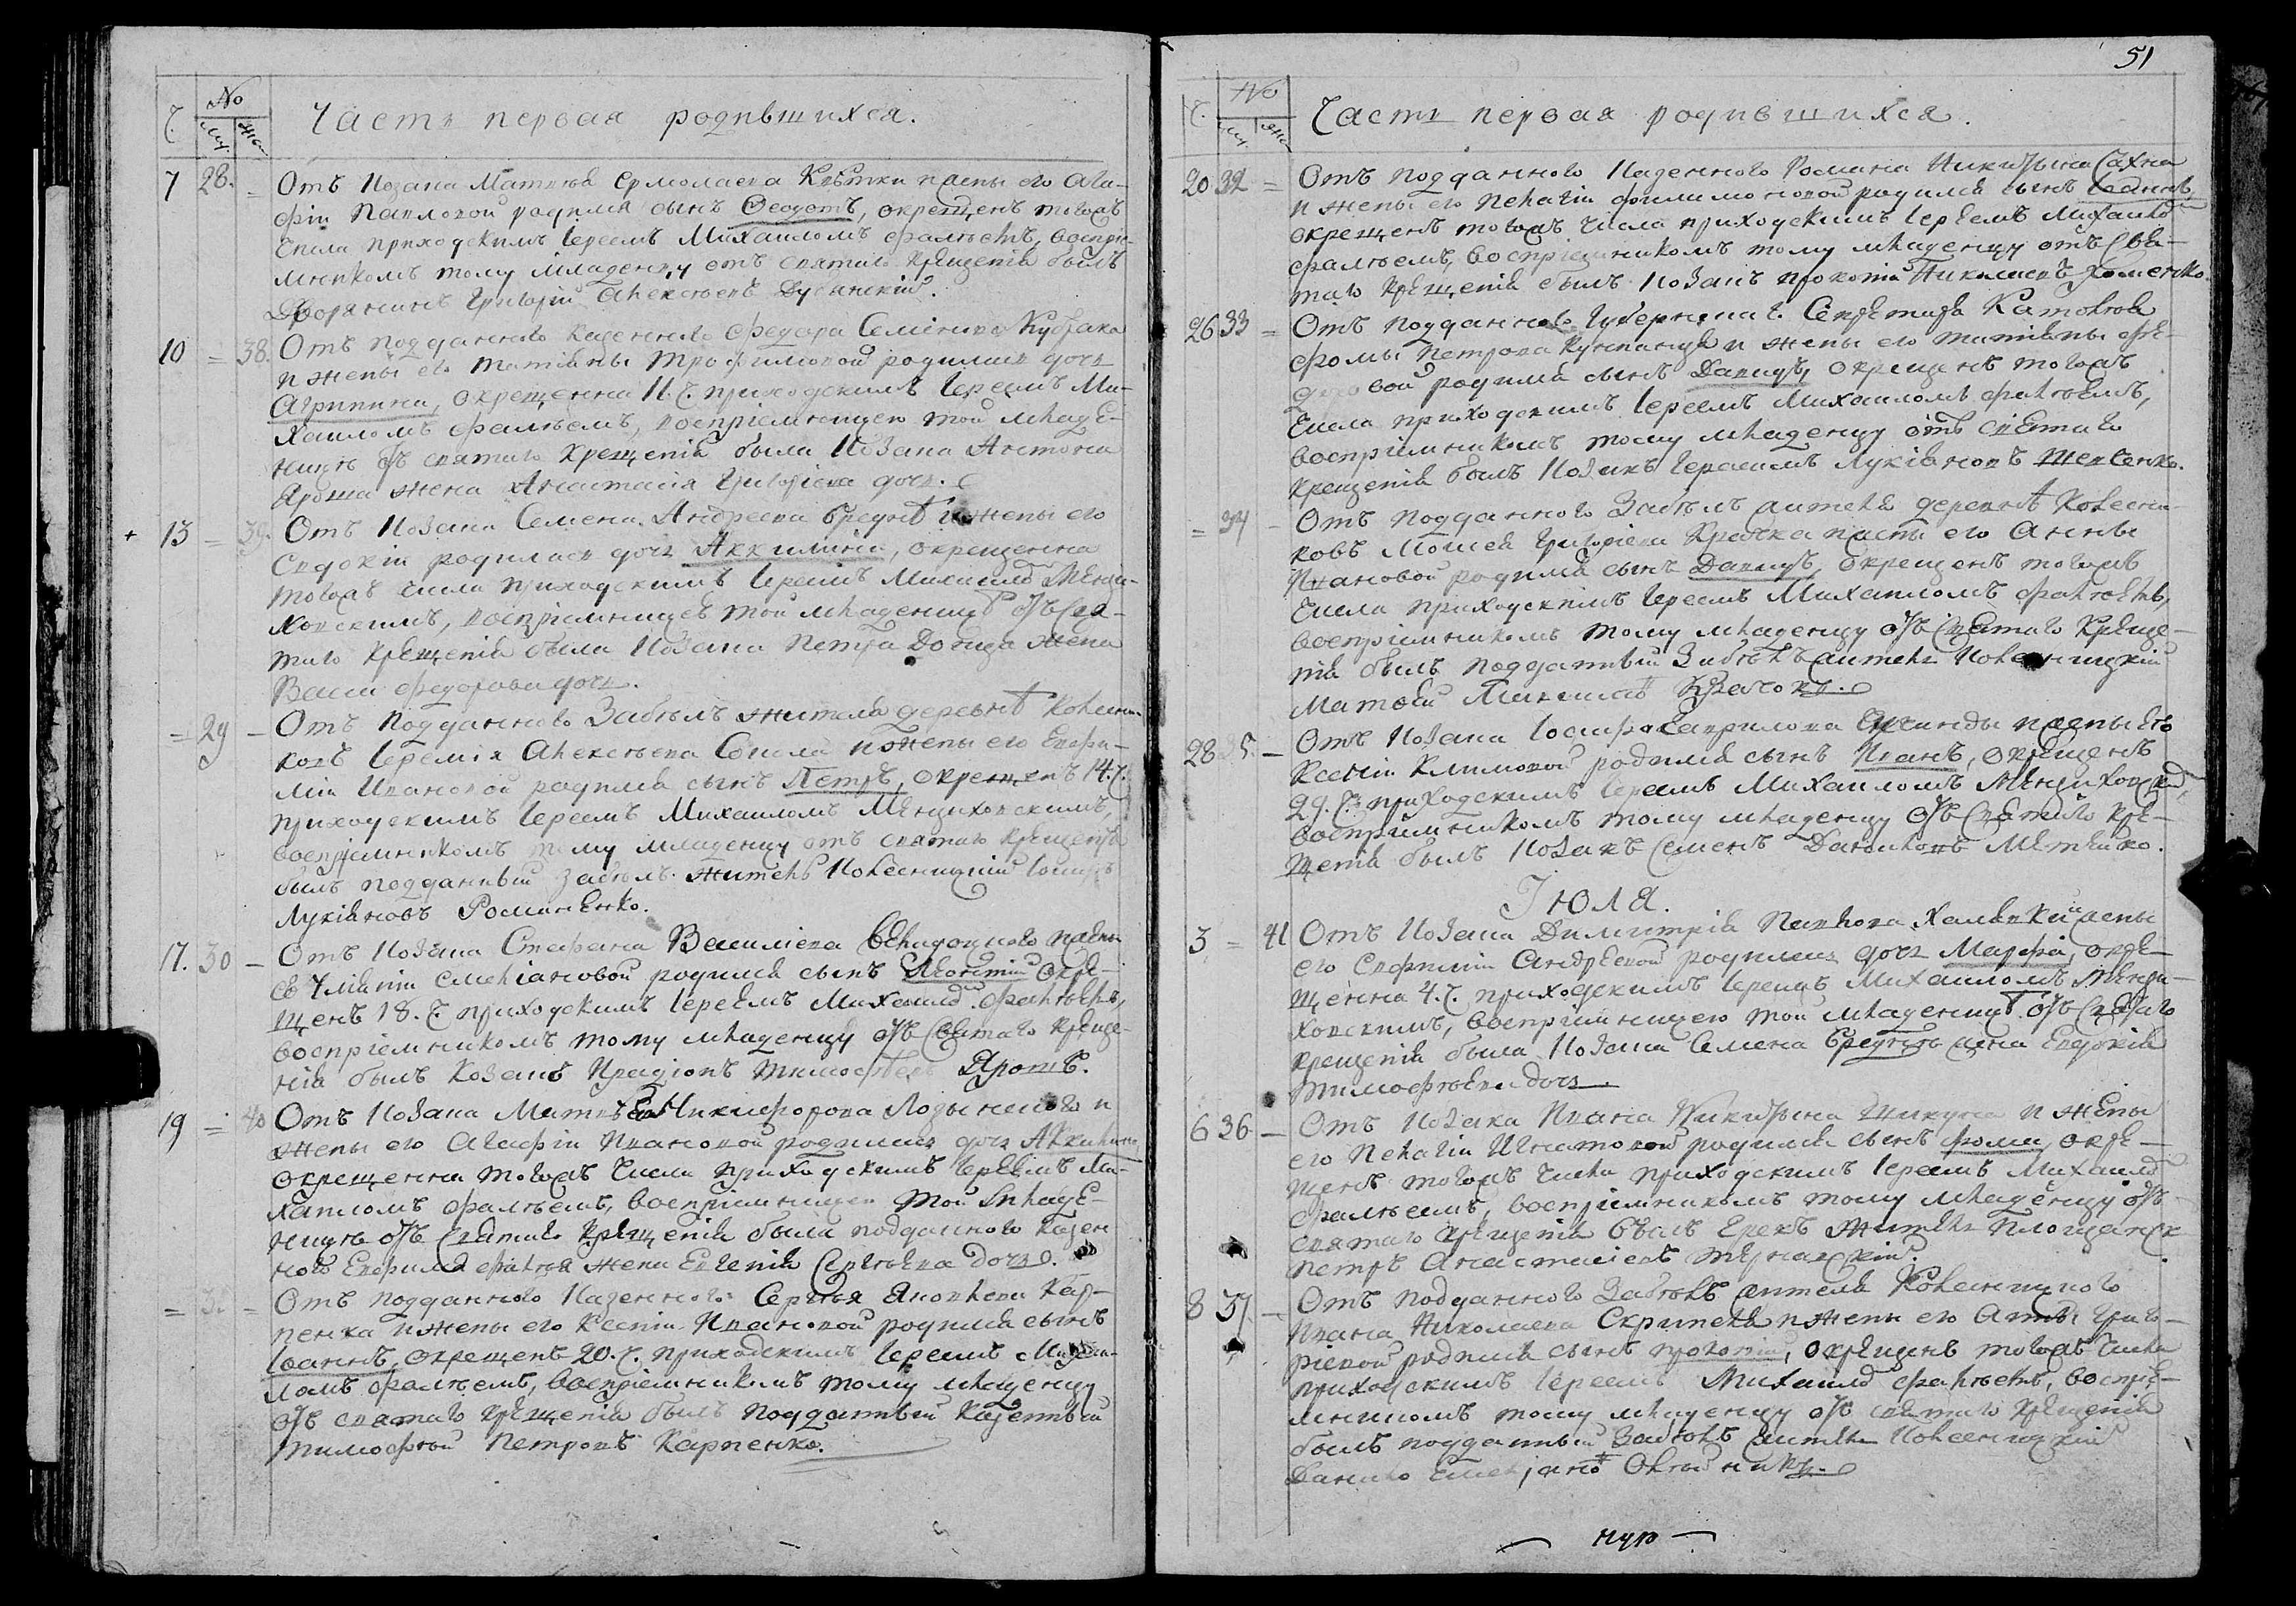 №
Ч. му. же.
Часть первая родившихся.
7 28. = Отъ козака Матвея Ермолаева Квѣтки и жены его Ага-
фіи Павловой родился сынъ Ѳеодотъ, окрещенъ тогожъ
числа приходскимъ Іереемъ Михаиломъ Фалѣемъ, воспріе-
мникомъ тому младенцу отъ святаго крещенія былъ
Дворянинъ Григорій Алексѣевъ
10 = 38. Отъ подданного казенного Федора Семенова
и жены его Татіяны Трофимовой родилась дочь
Агрипина, окрещенна 11. ч. приходскимъ Іереемъ Ми-
хаиломъ Фалѣемъ, воспріемницею той младе-
ницѣ отъ святаго крещенія была козака Антона
Яроша жена Анастасія Григорієва дочь.
+ 13 = 39. Отъ козака Семена Андреева и жены его
Евдокіи родилась дочь Аккилина, окрещенна
тогожъ числа приходскимъ Іереемъ Михаилъ Менжи-
ховскимъ, воспріемницею той младеницѣ отъ Свя-
таго крещенія была козака Петра жена
Васса Федорова дочь.
= 29 – Отъ подданного Забѣлъ жителя деревнѣ Колесни-
ковъ Іеремія Алексѣева и жены его Евфи-
міи Ивановой родился сынъ Петръ, окрещенъ 14. ч.
приходскимъ Іереемъ Михаиломъ Менжиховскимъ,
воспріемникомъ тому младенцу отъ святаго крещенія
былъ подданный Забѣлъ житель Колесницкій Іосифъ
Лукіяновъ Романенко.
17. 30 – Отъ козака Стефана Василіева и жены
его Уліяніи Емеліяновой родился сынъ Леонтій окре-
щенъ 18. ч. приходскимъ Іереемъ Михаиломъ Фалѣемъ,
воспріемникомъ тому младенцу отъ святаго креще-
нія былъ козакъ Иродіонъ Тимофѣевъ
19 = 40 Отъ козака Матвѣя Никифорова и
жены его Агафіи Ивановой родилась дочь Аккилина,
окрещенна тогожъ числа приходскимъ Іереемъ Ми-
хаиломъ Фалѣемъ, воспріемницею той младе-
ницѣ отъ святаго крещенія была подданного казен
ного Евфима Фалѣя жена Евгенія Сергѣева дочь.
= – Отъ подданного казенного Сергѣя Яковлева Кар-
пенка и жены его Ксеніи Ивановой родился сынъ
Іоаннъ, окрещенъ 20. ч. приходскимъ Іереемъ Михаи-
ломъ Фалѣемъ, воспріемникомъ тому младенцу
отъ святаго крещенія былъ подданный казенный
Тимофѣй Петровъ Карпенко.
51
№
Ч. му. же.
Часть первая родившихся.
20 32 = Отъ подданного казенного Романа Никитина Сахна
и жены его Пелагіи Филимоновой родился сынъ Іоаннъ,
окрещенъ тогожъ числа приходскимъ Іереемъ Михаило
Фалѣемъ, воспріемникомъ тому младенцу отъ Свя-
таго крещенія былъ козакъ Прокопій Николаевъ Хоменко.
26 33 = Отъ подданного Губернскаг. Секретаря
Фомы Петрова и жены его Татіяны Фе-
доровой родился сынъ Давидъ, окрещенъ тогожъ
числа приходскимъ Іереемъ Михаиломъ Фалѣемъ,
воспріемникомъ тому младенцу отъ святаго
крещенія былъ козакъ Герасимъ Лукіяновъ Шевченко.
= 34 – Отъ подданного Забѣлъ жителя деревнѣ Колесни-
ковъ Мойсея Григоріева Крачка и жены его Анны
Ивановой родился сынъ Давидъ, окрещенъ тогожъ
числа приходскимъ Іереемъ Михаиломъ Фалѣемъ,
воспріемникомъ тому младенцу отъ святаго креще-
нія былъ подданный Забѣлъ житель Колесницкій
Матвѣй
28 35. – Отъ козака Іосифа Гаврилова и жены его
Ксеніи Климовой родился сынъ Иванъ, окрещенъ
29. ч. приходскимъ Іереемъ Михаиломъ Менжиховски,
воспріемникомъ тому младенцу отъ святаго кре-
щенія былъ козакъ Семенъ
Іюля.
3 = 41 Отъ козака Димитрія Павлова и жены
его Евфиміи Андреевой родилась дочь Марфа, окре-
щенна 4. ч. приходскимъ Іереемъ Михаиломъ Менжи-
ховскимъ, воспріемницею той младеницѣ отъ святаго
крещенія была козака Семена жена Евдокія
Тимофѣева дочь.
6 36 – Отъ козака Ивана Никитина и жены
его Пелагіи Игнатовой родился сынъ Фома, окре-
щенъ тогожъ числа приходскимъ Іереемъ Михаилъ
Фалѣемъ, воспріемникомъ тому младенцу отъ
святаго крещенія былъ житель
Петръ Анастасіевъ
8 37. – Отъ подданного Забѣлъ жителя Колесницкого
Ивана Николаева и жены его Анны Григо-
ріевой родился сынъ Прокопій, окрещенъ тогожъ числа
приходскимъ Іереемъ Михаилъ Фалѣемъ, воспріе-
мникомъ тому младенцу отъ святаго крещенія
былъ подданный Забѣлъ житель Колесницкій
Данило